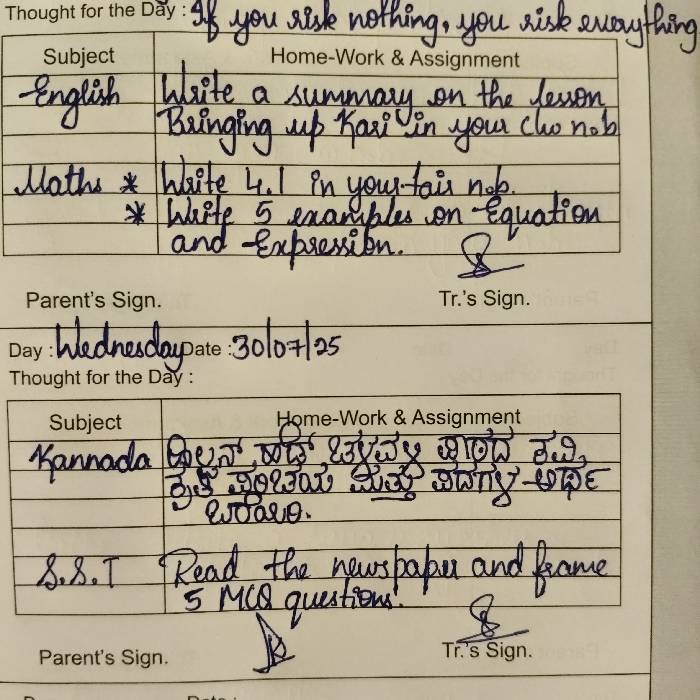 Thought for the Day : If you risk nothing, you risk everything
Subject Home-Work & Assignment
English Write a summary on the lesson
Bringing up Kari in your cw n.b
Maths * Write 4.1 in your fair n.b.
* Write 5 examples on Equation
and Expression.
Parent's Sign. Tr.'s Sign.
Day : Wednesday Date : 30/07/25
Thought for the Day :
Subject Home-Work & Assignment
Kannada ಪಾಠದ ಕವಿ,
ಕೃತಿ ಪರಿಚಯ ಮತ್ತು ಪದಗಳ ಅರ್ಥ
ಬರೆಯಿರಿ.
S.S.T Read the newspaper and frame
5 MCQ questions.
Parent's Sign. Tr.'s Sign.